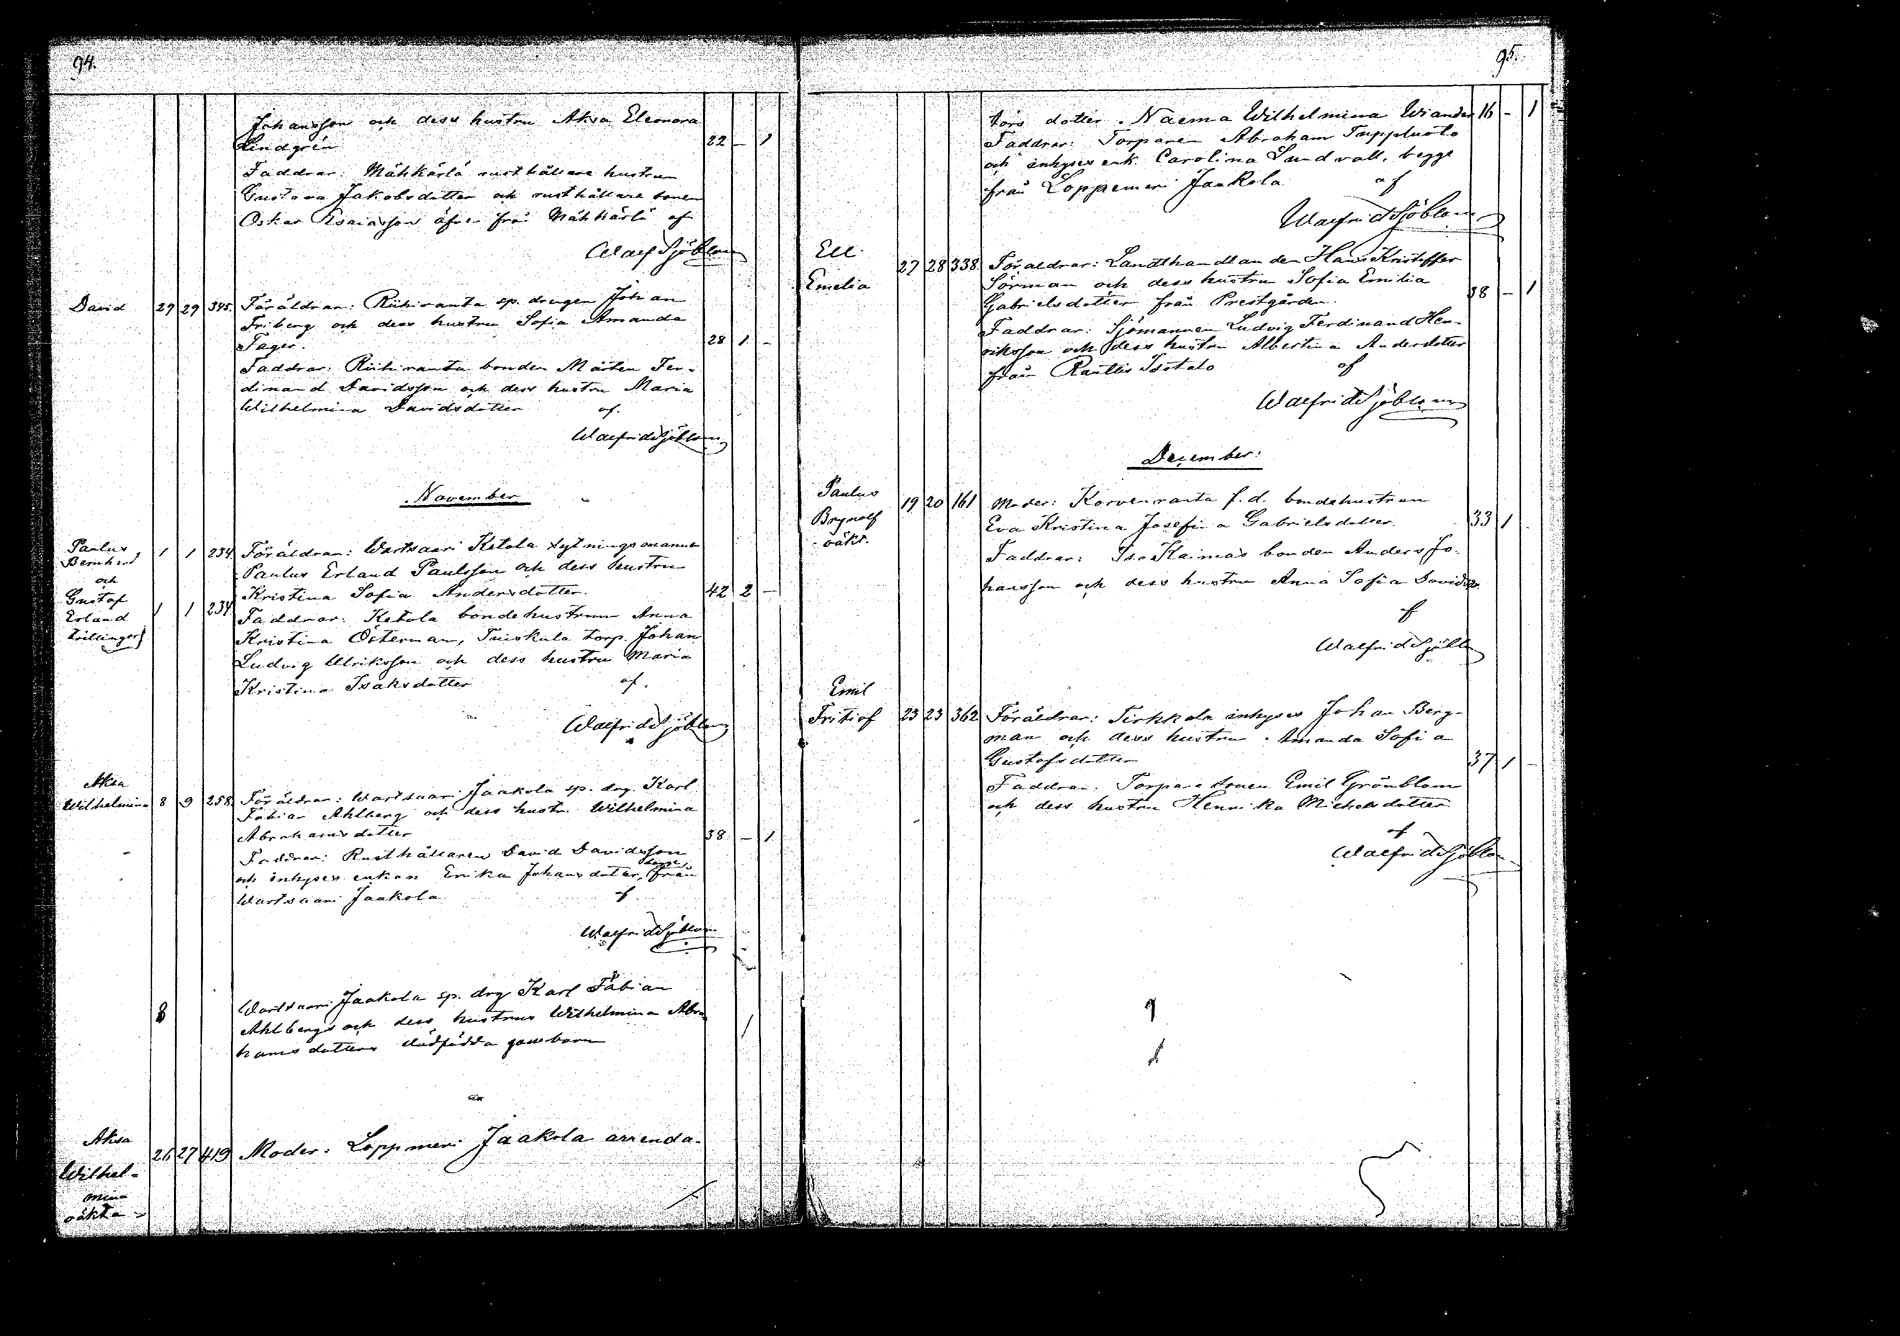 94.
Johansson och dess hustru Aksa Eleonora
Lindgrén 22 – 1
Faddrar: Mähkärlä rusthållare hustrun
Gustava Jakobsdotter och rusthållare sonen
Oskar Esaiasson äfven från Mähkärlä af
Walf Sjöblom
David 29 29 345. Föräldrar: Riihiranta sp. drengen Johan
Friberg och dess hustru Sofia Amanda
Tager. 28 1 –
Faddrar: Riihiranta bonden Mårten Fer-
dinand Davidsson och dess hustru Maria
Wilhelmina Davidsdotter af.
Walfrid Sjöblom
November
Paulus Bernhard 1 1 234. Föräldrar: Wartsaari Ketola sytningsmannen
och Paulus Erland Paulsson och dess hustru
Gustaf Kristina Sofia Andersdotter. 42 2 –
Erland 1 1 234. Faddrar: Ketola bondehustrun Anna
trillingar Kristina Österman, torp. Johan
Ludvig Ulriksson och dess hustru Maria
Kristina Isaksdotter af.
Walfrid Sjöblom
Aksa
Wilhelmina 8 9 258. Föräldrar: Wartsaari Jaakola sp. drg. Karl
Fabian Ahlberg och dess hustru Wilhelmina
Abrahamsdotter 38 – 1
Faddrar: Rusthållaren David Davidsson
och inhyses enkan Erika Johansdotter, begge från
Wartsaari Jaakola af
Walfrid Sjöblom
8 Wartsaari Jaakola sp. drg Karl Fabian
Ahlbergs och dess hustrus Wilhelmina Abra-
hamsdotters dödfödda gossbarn 1
Aksa
Wilhel-
mina
oäkta 26 27 419 Moder: Loppmeri Jaakola arrenda-
95.
tors dotter Naema Wilhelmina Wiander 16 – 1
Faddrar: Torparen Abraham Tuppluoto
och inhyses enk. Carolina Sundvall, begge
från Loppemeri Jaakola af
Walfrid Sjöblom
Ell
Emelia 27 28 338. Föräldrar: Landthandlanden Hans Kristoffer
Sörman och dess hustru Sofia Emilia
Gabrielsdotter från Prestgården. 38 – 1
Faddrar: Sjömannen Ludvig Ferdinand Hen-
riksson och dess hustru Albertina Andersdotter
från Isotalo af
Walfrid Sjöblom
December.
Paulus
Brynolf
oäkt. 19 20 161 Moder: Korvenranta f.d. bondehustrun
Eva Kristina Josefina Gabrielsdotter. 33 1
Faddrar: Iso Kaimas bonden Anders Jo-
hansson och dess hustru Anna Sofia Davidsdr.
af
Walfrid Sjöblom
Emil
Fritiof 23 23 362 Föräldrar: Tirkkala inhyses Johan Berg-
man och dess hustru Amanda Sofia
Gustafsdotter 37 1 –
Faddrar: Torpare sonen Emil Grönblom
och dess hustru Henrika Michelsdotter
af
Walfrid Sjöblom